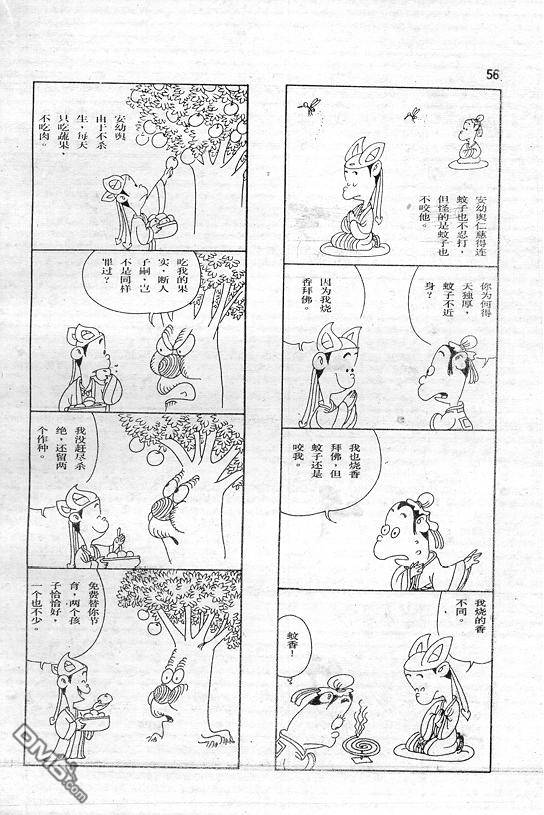 56
安幼舆仁慈得连
蚊子也不忍打，
但怪的是蚊子也
不咬他。
你为何得
天独厚，
蚊子不近
身？
因为我烧
香拜佛。
我也烧香
拜佛，但
蚊子还是
咬我。
我烧的香
不同。
蚊香！
安幼舆
由于不杀
生，每天
只吃蔬果，
不吃肉。
吃我的果
实，断人
子嗣，岂
不是同样
罪过？
我没赶尽杀
绝，还留两
个作种。
免费替你节
育，两个孩
子恰恰好，
一个也不少。
DM5.com